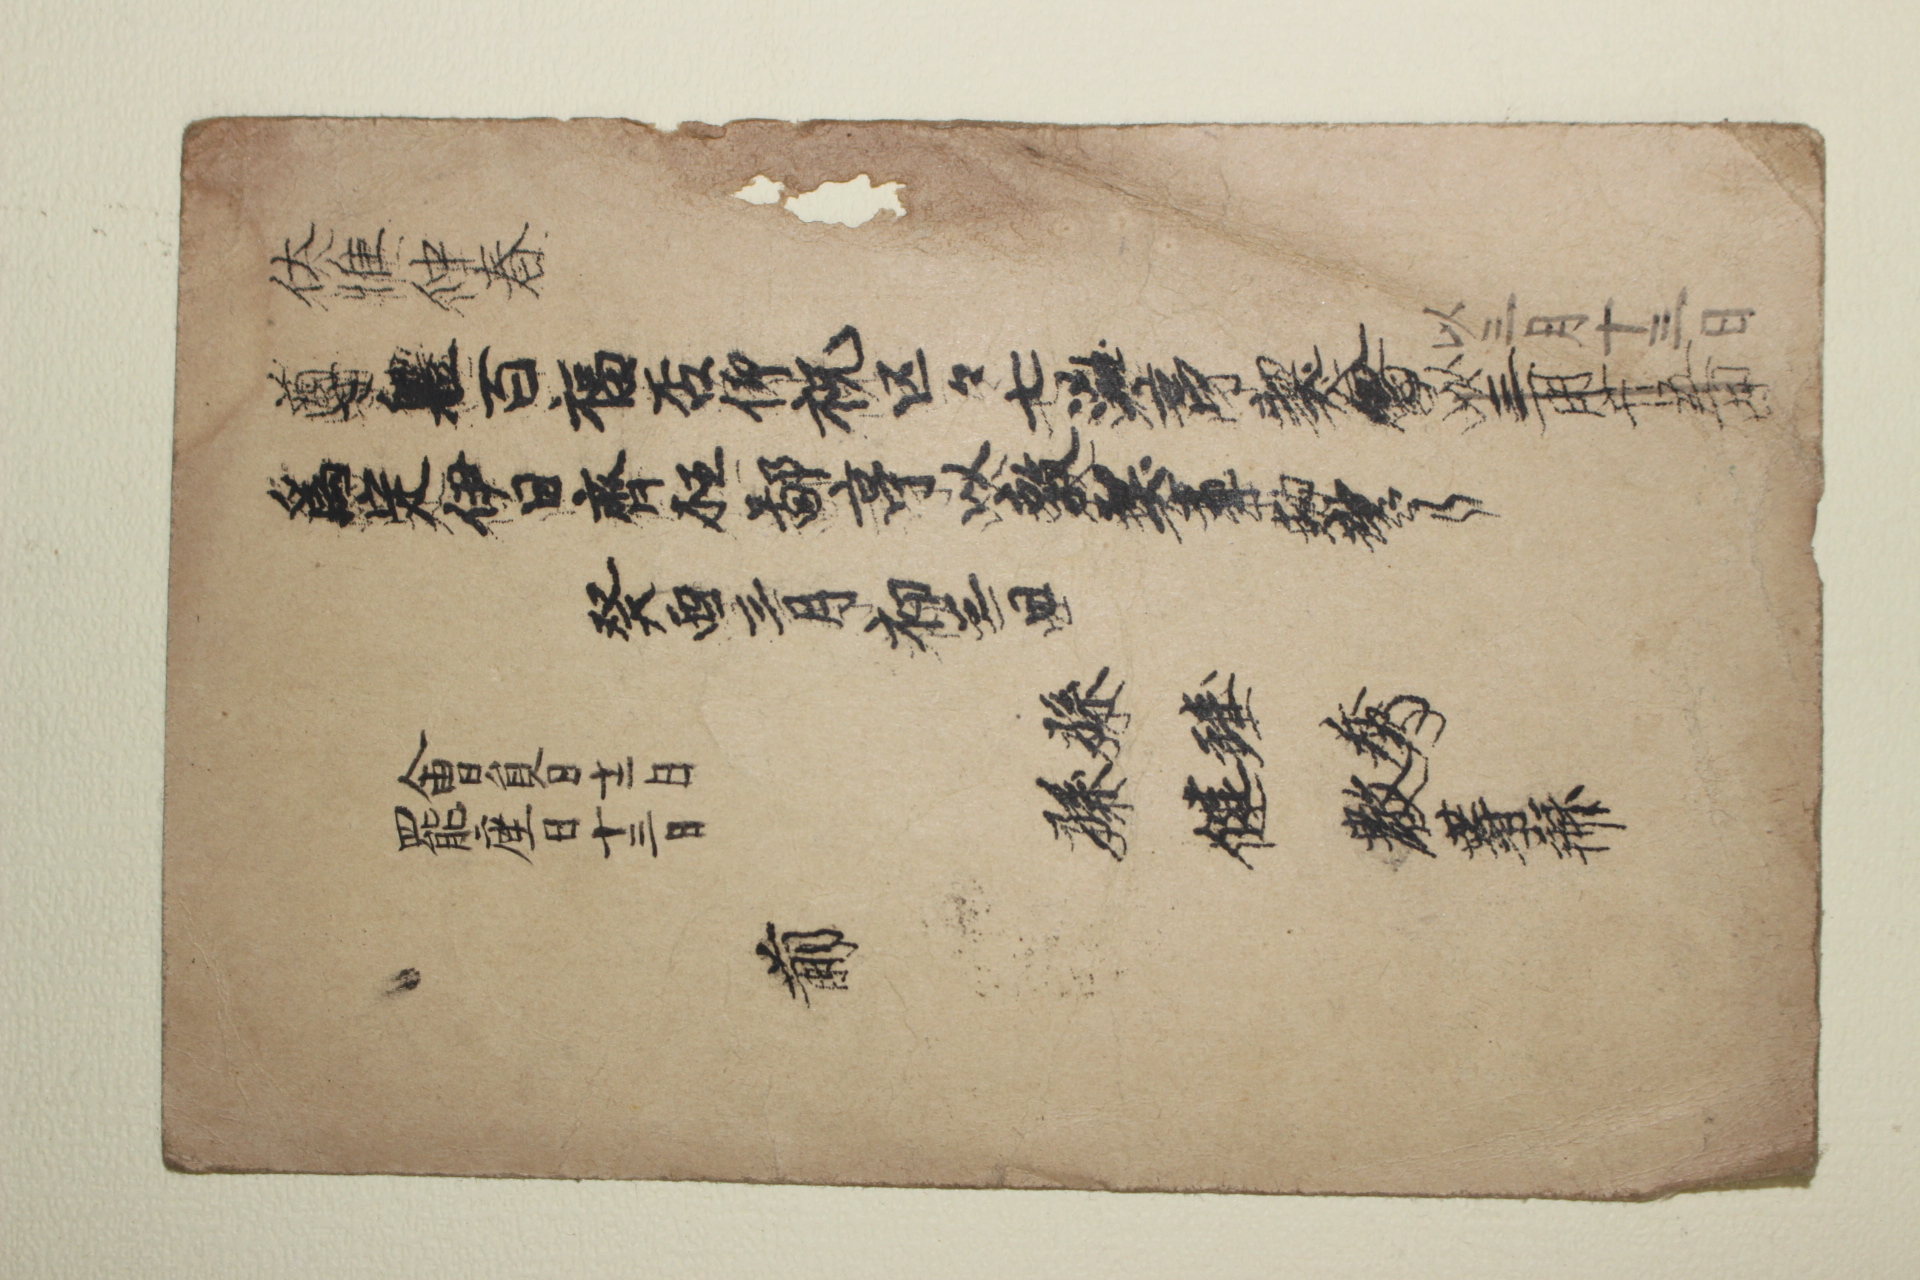 伏惟仲春
尊體百福否仰祝区々七亭契會以三月十五日
以三月十三日
爲定伊日齊枉鄙亭以敦契事勤勤
癸酉三月初三日
會員日十二日
罷座日十三日
孫 秀
孫健敎 等
前